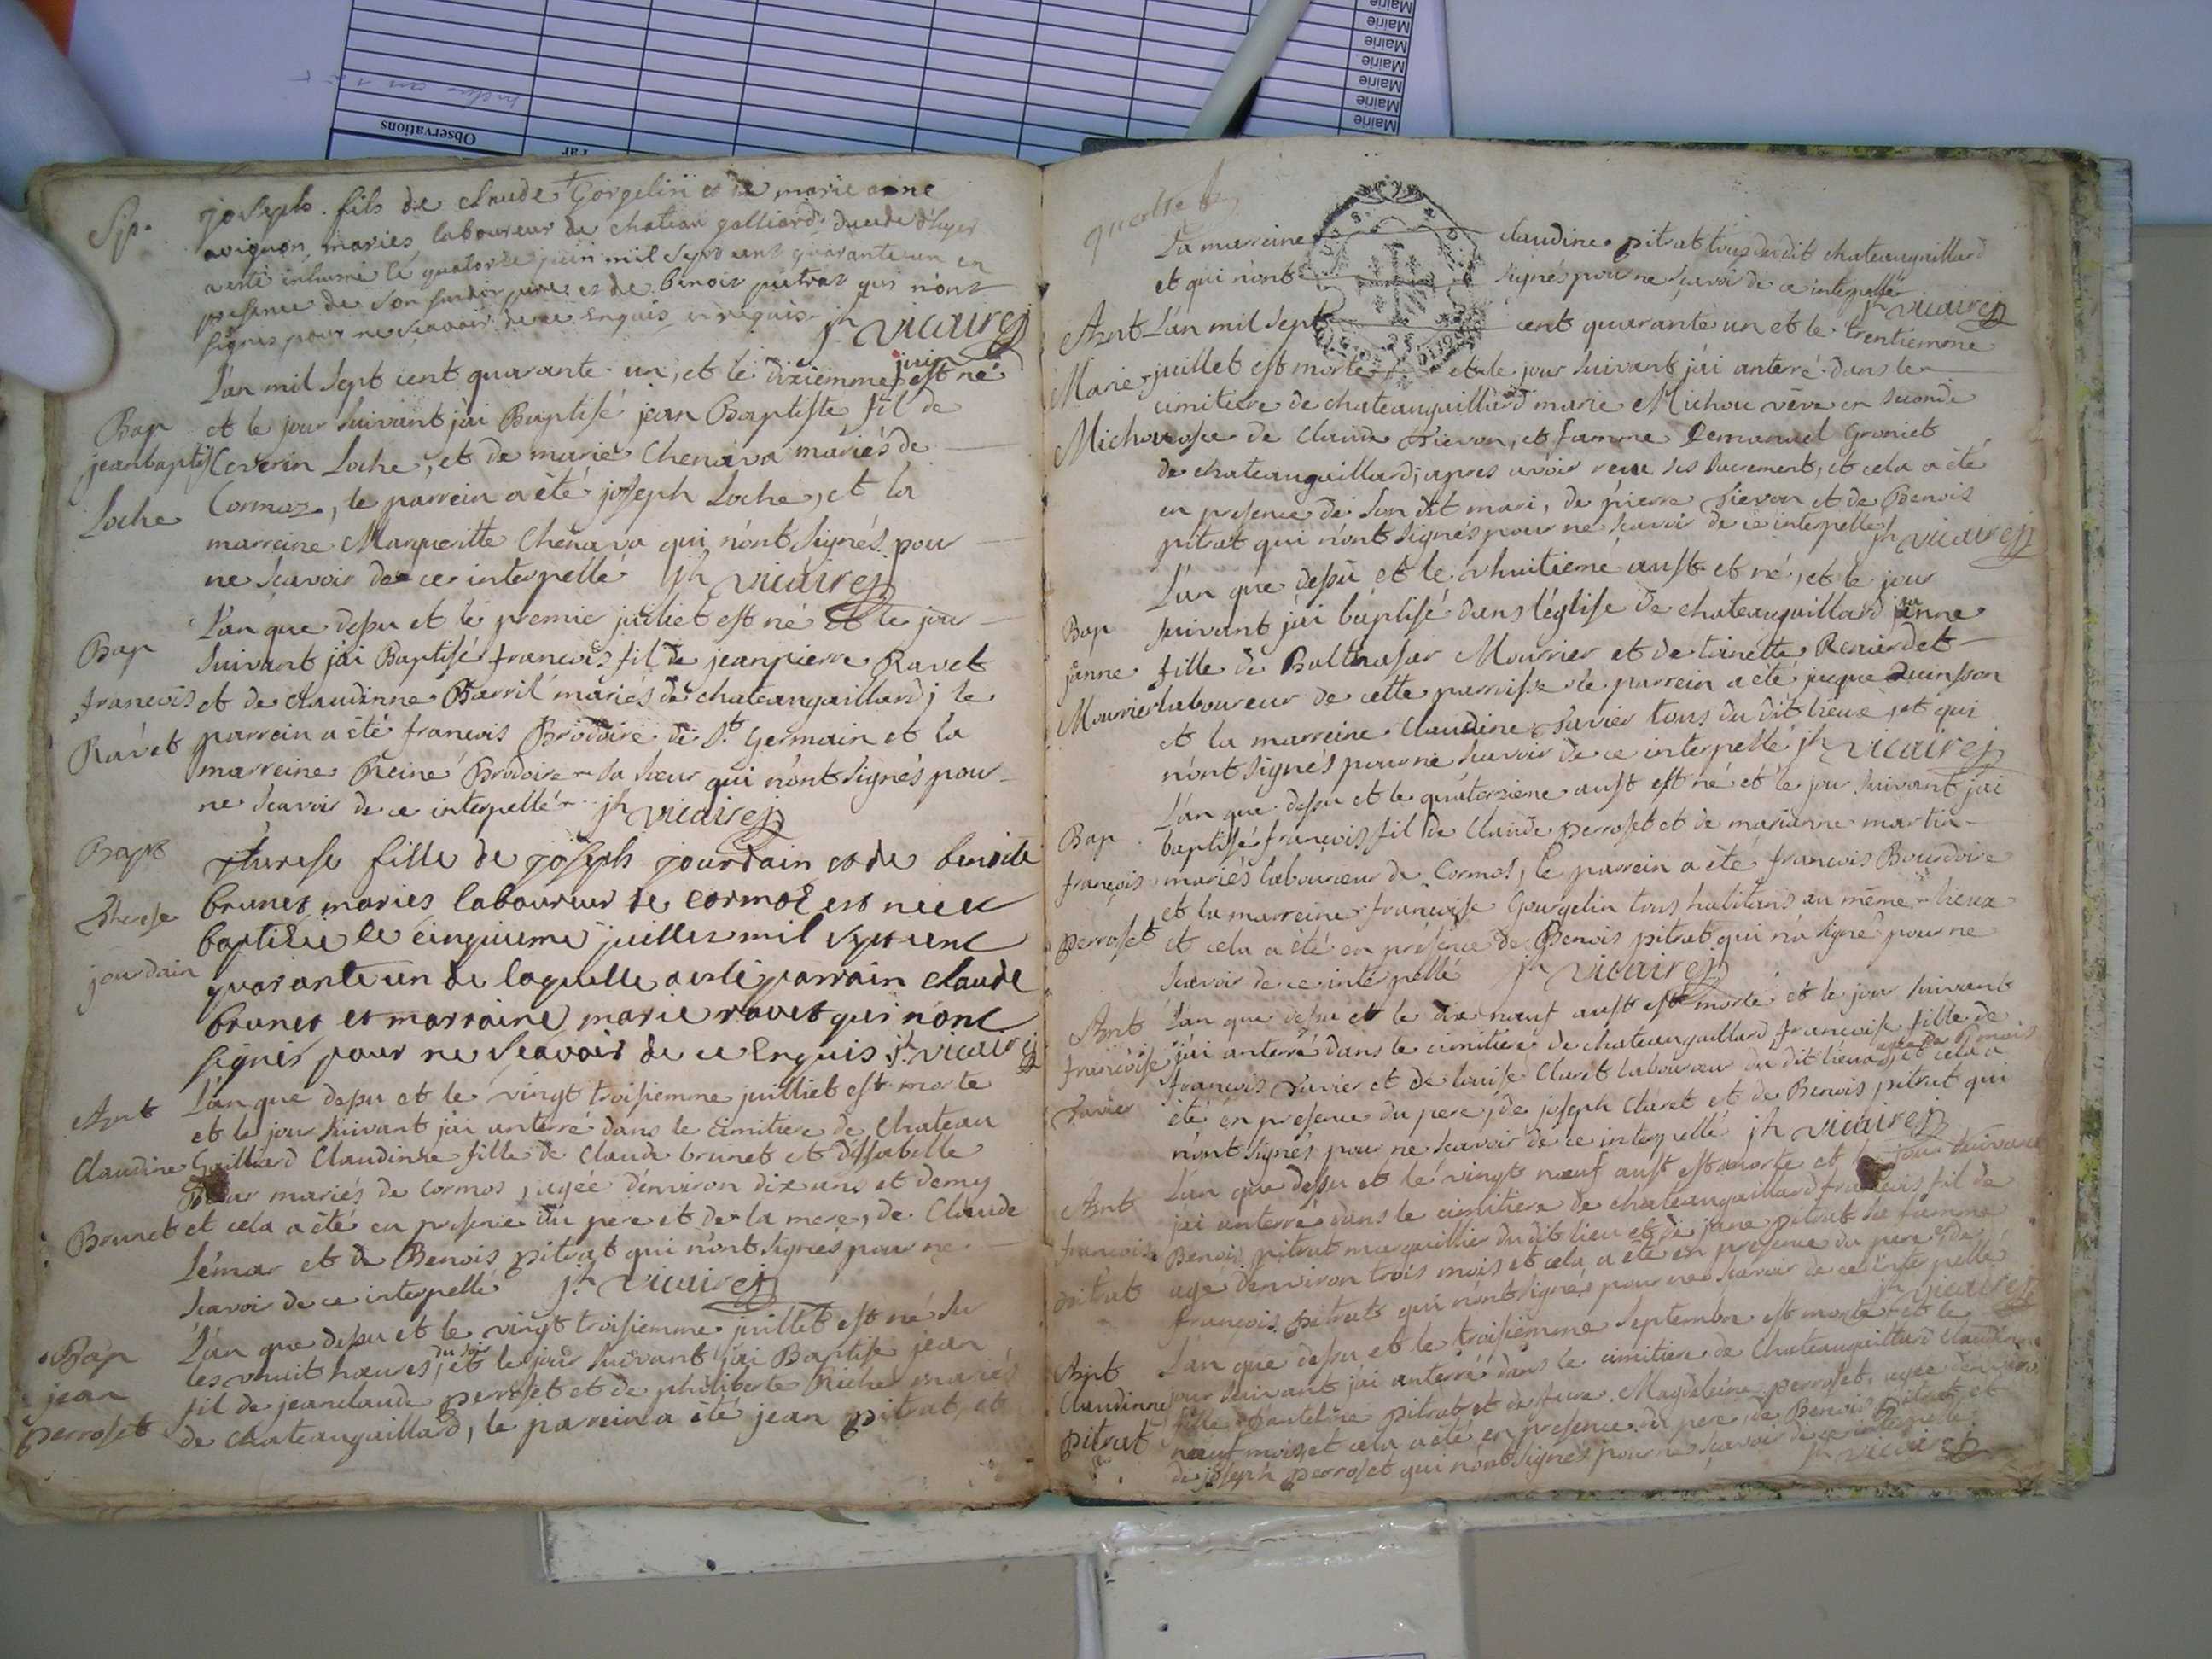 Observations
Par
Mairie
Mairie
Mairie
Mairie
Mairie
Mairie
Sep.
joseph fils de claude Gorgelin et de marie anne
avignon mariés laboureur de chateau galliard
a esté inhumé le quatorze juin mil sept cent quarante un en
presence de son susdit pere et de benoit pitrat qui n'ont
signés pour ne scavoir de ce enquis et requis jh vicaire
L'an mil sept cent quarante un, et le dixiemme juin est né
Bap
jean baptis
Loche
et le jour suivant j'ai Baptisé jean Baptiste fil de
Ceverin Loche, et de marie Chenava mariés de
Cormoz, le parrein a été joseph Loche, et la
marreine Margueritte Chenava qui n'ont signés pour
ne scavoir de ce interpellé jh vicaire
Bap
francois
Ravet
L'an que dessu et le premie julliet est né et le jour
suivant j'ai Baptisé francois fil de jeanpierre Ravet
et de claudinne Barril mariés de chateaugaillard; le
parrein a été francois Brodoire de St Germain et la
marreine Reine Brodoire sa sœur qui n'ont signés pour
ne scavoir de ce interpellé jh vicaire
Bapt
Therese
jourdain
therese fille de joseph jourdain et de benoite
brunet maries laboureur de cormoz est nee et
baptisee le cinquieme juillet mil sept cent
quarante un de laquelle a esté parrain claude
brunet et marraine marie ravet qui n'ont
signés pour ne scavoir de ce enquis jh vicaire
Ant
Claudine
Brunet
L'an que dessu et le vingt troisiemme juilliet est morte
et le jour suivant j'ai anterré dans le cimitiere de chateau
Gailliard Claudinne fille de Claude brunet et d'issabelle
mariés de Cormos, agée d'environ dix ans et demy
et cela a été en presence du pere et de la mere, de Claude
Lémar et de Benois pitrat qui n'ont signés pour ne
scavoir de ce interpellé jh vicaire
Bap
jean
perroset
L'an que dessu et le vingt troisiemme juillet est né sur
les vhuit hœures du soir, et le jour suivant j'ai Baptisé jean
fil de jeanclaude perroset et de philiberte Riche mariés
de chateaugaillard, le parrein a été jean pitrat, et
La marreine claudine pitrat tous dudit chateaugaillard
et qui n'ont signés pour ne scavoir de ce interpellé
jh vicaire
Ant
Marie
Michou
L'an mil sept cent quarante un et le trentiemme
juillet est morte, et le jour suivant j'ai anterré dans le
cimitiere de chateaugaillard marie Michou vêve en seconde
nosce de Claude Sievon, et famme demanuel Groniet
de chateaugaillard; apres avoir reçu ses sacrement, et cela a été
en presence de son dit mari, de pierre Sievon et de Benois
pitrat qui n'ont signés pour ne scavoir de ce interpellé jh vicaire
Bap
jeanne
Mourrier
L'an que dessu et le vhuitiemé aust et né, et le jour
suivant j'ai baptisé dans l'église de chateaugaillard janne
fille de Balthasar Mourrier et de toinette Renardet
laboureur de cette parroisse le parrein a été jaque Quinsson
et la marreine Claudine Savier tous du dit lieux, et qui
n'ont signés pour ne scavoir de ce interpellé jh vicaire
Bap
françois
perroset
L'an que dessu et le quatorzieme aust est né et le jour suivant j'ai
baptisé françois fil de Claude perroset et de marianne martin
mariés labourœur de Cormos, le parrein a été francois Bourdoire
et la marreine françoise Gourgelin tous habitans au même lieux
et cela a été en présence de Benois pitrat qui n'a signé pour ne
scavoir de ce interpellé jh vicaire
Ant
francoise
Savier
L'an que dessu et le dix nœuf aust est morte et le jour suivant
j'ai anterré dans le cimitiere de chateaugaillard francoise fille de
francois Savier et de louise Claret labourœur du dit lieux, et cela a
été en presence du pere, de joseph Claret et de Benois pitrat qui
n'ont signés pour ne scavoir de ce interpellé jh vicaire
Ant
francois
pitrat
L'an que dessu et le vingt nœuf aust est morte et le jour suivant
j'ai anterré dans le cimitiere de chateaugaillard francois fil de
Benois pitrat marguillier du dit lieu et de jane pitrat sa famme
age denviron trois mois et cela a été en presence du pere, de
francois pitrat qui n'ont signés pour ne scavoir de ce interpellé
jh vicaire
Ant
Claudinne
pitrat
L'an que dessu et le troisiemme septembre est morte et le
jour suivant j'ai anterré dans le cimitiere de Chateaugaillard claudinne
fille d'antelme pitrat et de fuee Magdeleine perroset, agée denviron
nœuf mois et cela a été en presence du pere, de Benois pitrat et
de joseph perroset qui n'ont signés pour ne scavoir de ce interpellé
jh vicaire